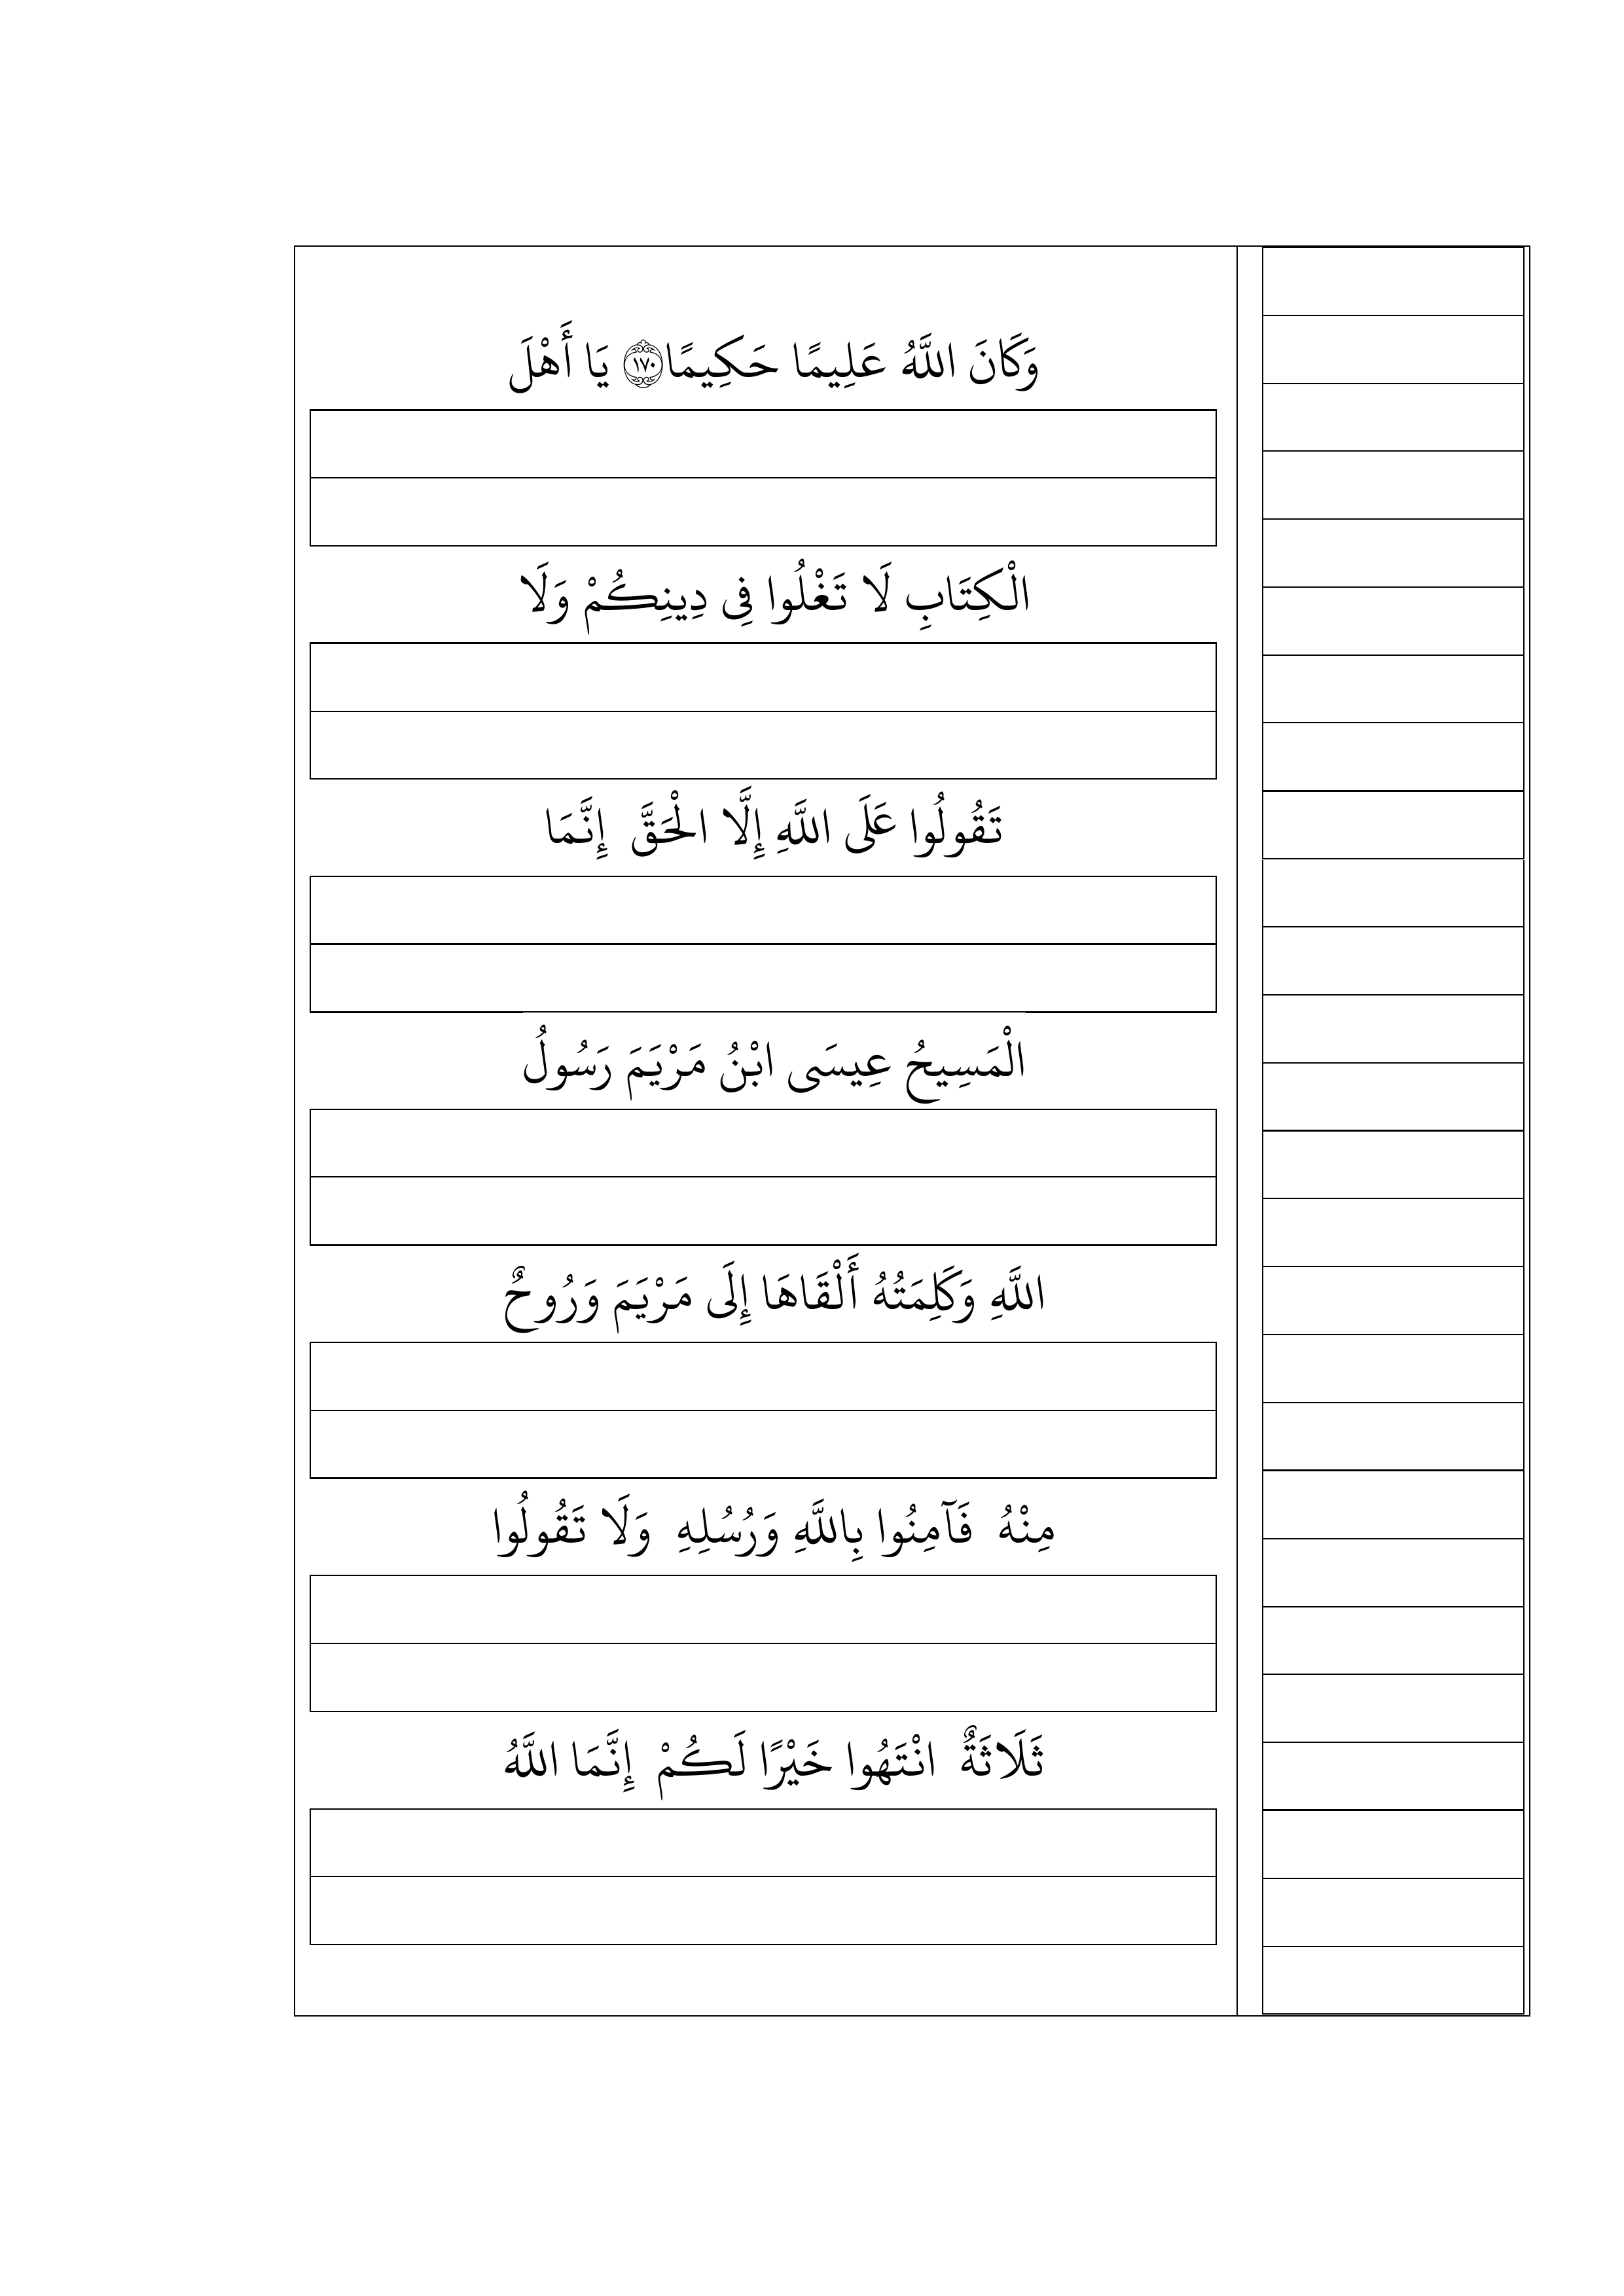 وَكَانَ اللَّهُ عَلِيمًا حَكِيمًا ۝١٧٠ يَا أَهْلَ
الْكِتَابِ لَا تَغْلُوا فِي دِينِكُمْ وَلَا
تَقُولُوا عَلَى اللَّهِ إِلَّا الْحَقَّ إِنَّمَا
الْمَسِيحُ عِيسَى ابْنُ مَرْيَمَ رَسُولُ
اللَّهِ وَكَلِمَتُهُ أَلْقَاهَا إِلَى مَرْيَمَ وَرُوحٌ
مِنْهُ فَآمِنُوا بِاللَّهِ وَرُسُلِهِ وَلَا تَقُولُوا
ثَلَاثَةٌ انْتَهُوا خَيْرًا لَكُمْ إِنَّمَا اللَّهُ